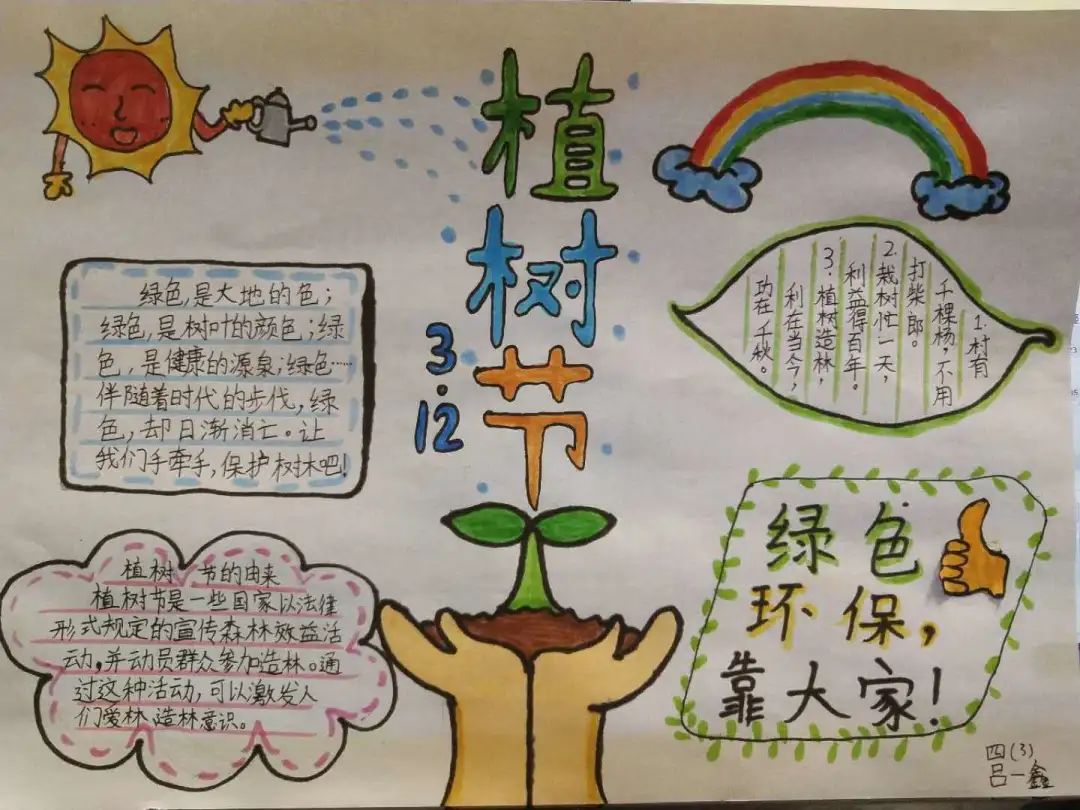 植
树
节
3.12
绿色,是大地的色;
绿色,是树叶的颜色;绿
色,是健康的源泉;绿色……
伴随着时代的步伐,绿
色,却日渐消亡。让
我们手牵手,保护树木吧!
1.村有
千棵杨,不用
打柴郎。
2.栽树忙一天,
利益得百年。
3.植树造林,
利在当今,
功在千秋。
植树节的由来
植树节是一些国家以法律
形式规定的宣传森林效益活
动,并动员群众参加造林。通
过这种活动,可以激发人
们爱林造林意识。
绿色
环保,
靠大家!
四(3)
吕一鑫